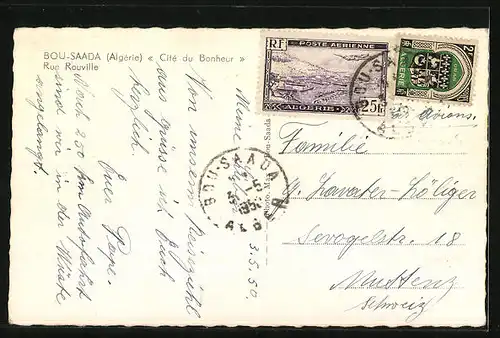 BOU-SAADA (Algérie) « Cité du Bonheur »
Rue Rouville
Meine
Von unserm Reiseziel
aus grüsse ich Euch
herzlich.
Euer Pape.
Nach 250 km Autofahrt
sind wir in der Wüste
angelangt.
3.5.50.
RF
POSTE AERIENNE
ALGERIE
25f
2F
ALGERIE
BOU-SAADA
1950
ALGER
par avion.
Familie
Sevogelstr. 18
Muttenz
Schweiz